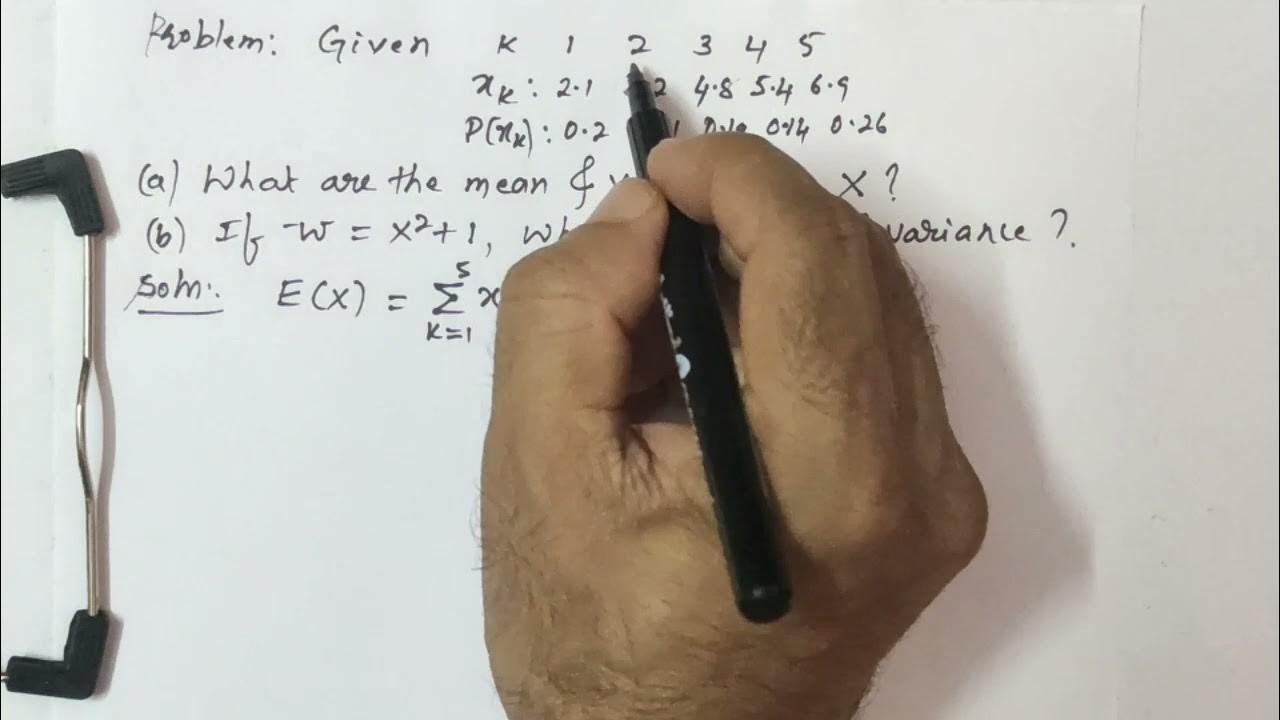 Problem: Given K 1 2 3 4 5
xₖ: 2.1 4.8 5.4 6.9
P(xₖ): 0.2 0.14 0.26
(a) What are the mean & X?
(b) If W = X²+1, variance?
Soln:. E(X) = 5 Σ K=1 x